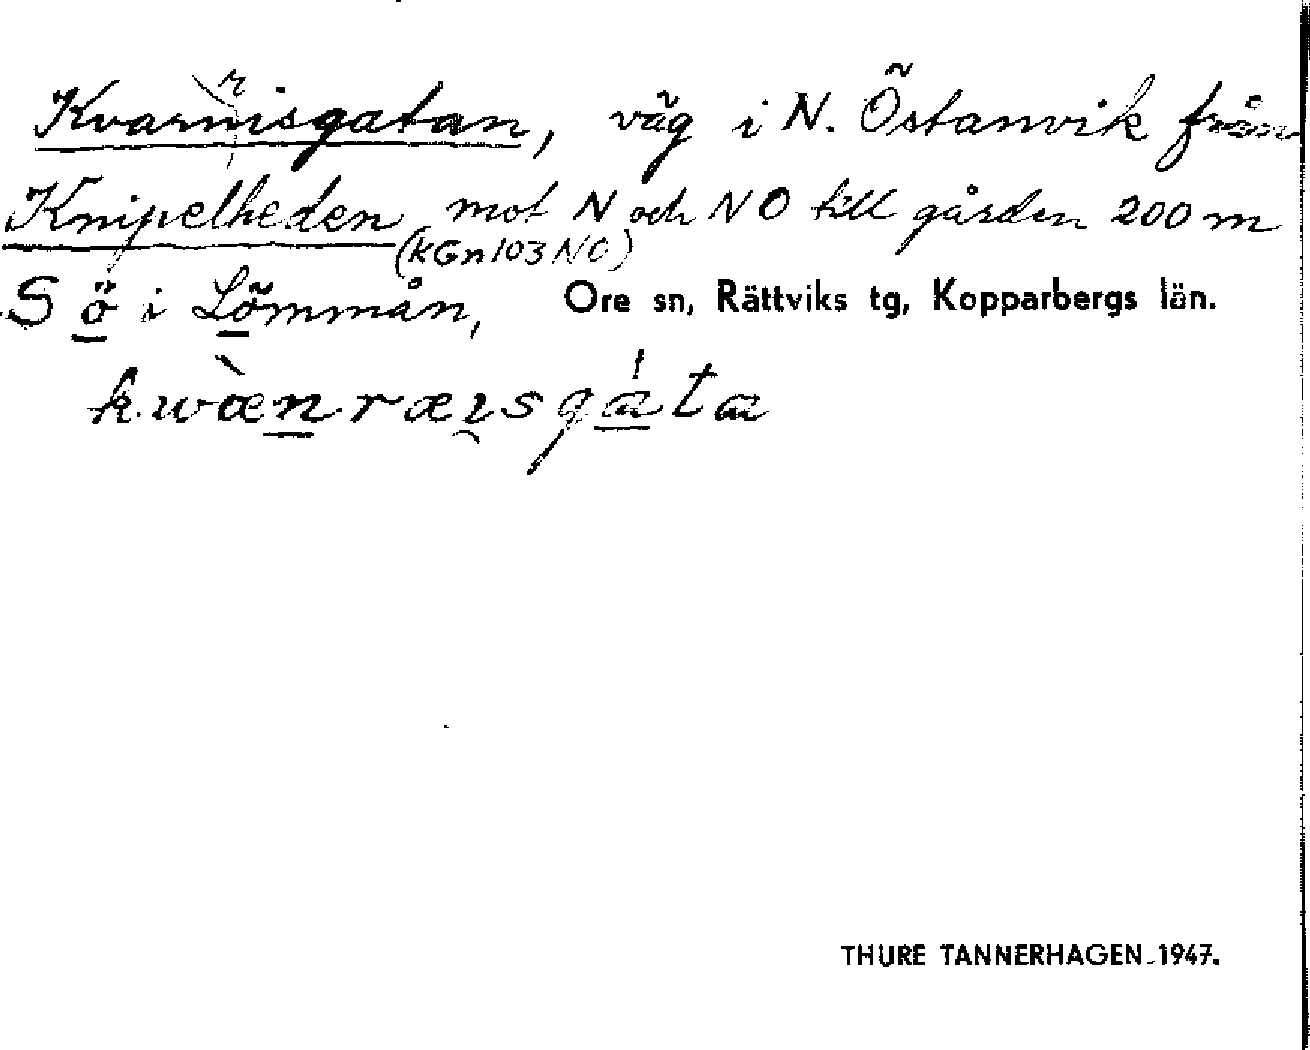 Kvarnrisgatan, väg i N. Östanvik från
Knipelheden mot N och NO till gården 200 m
(kGn103NO)
S ö i Lömmån, Ore sn, Rättviks tg, Kopparbergs län.
kwànræisgáta
THURE TANNERHAGEN 1947.